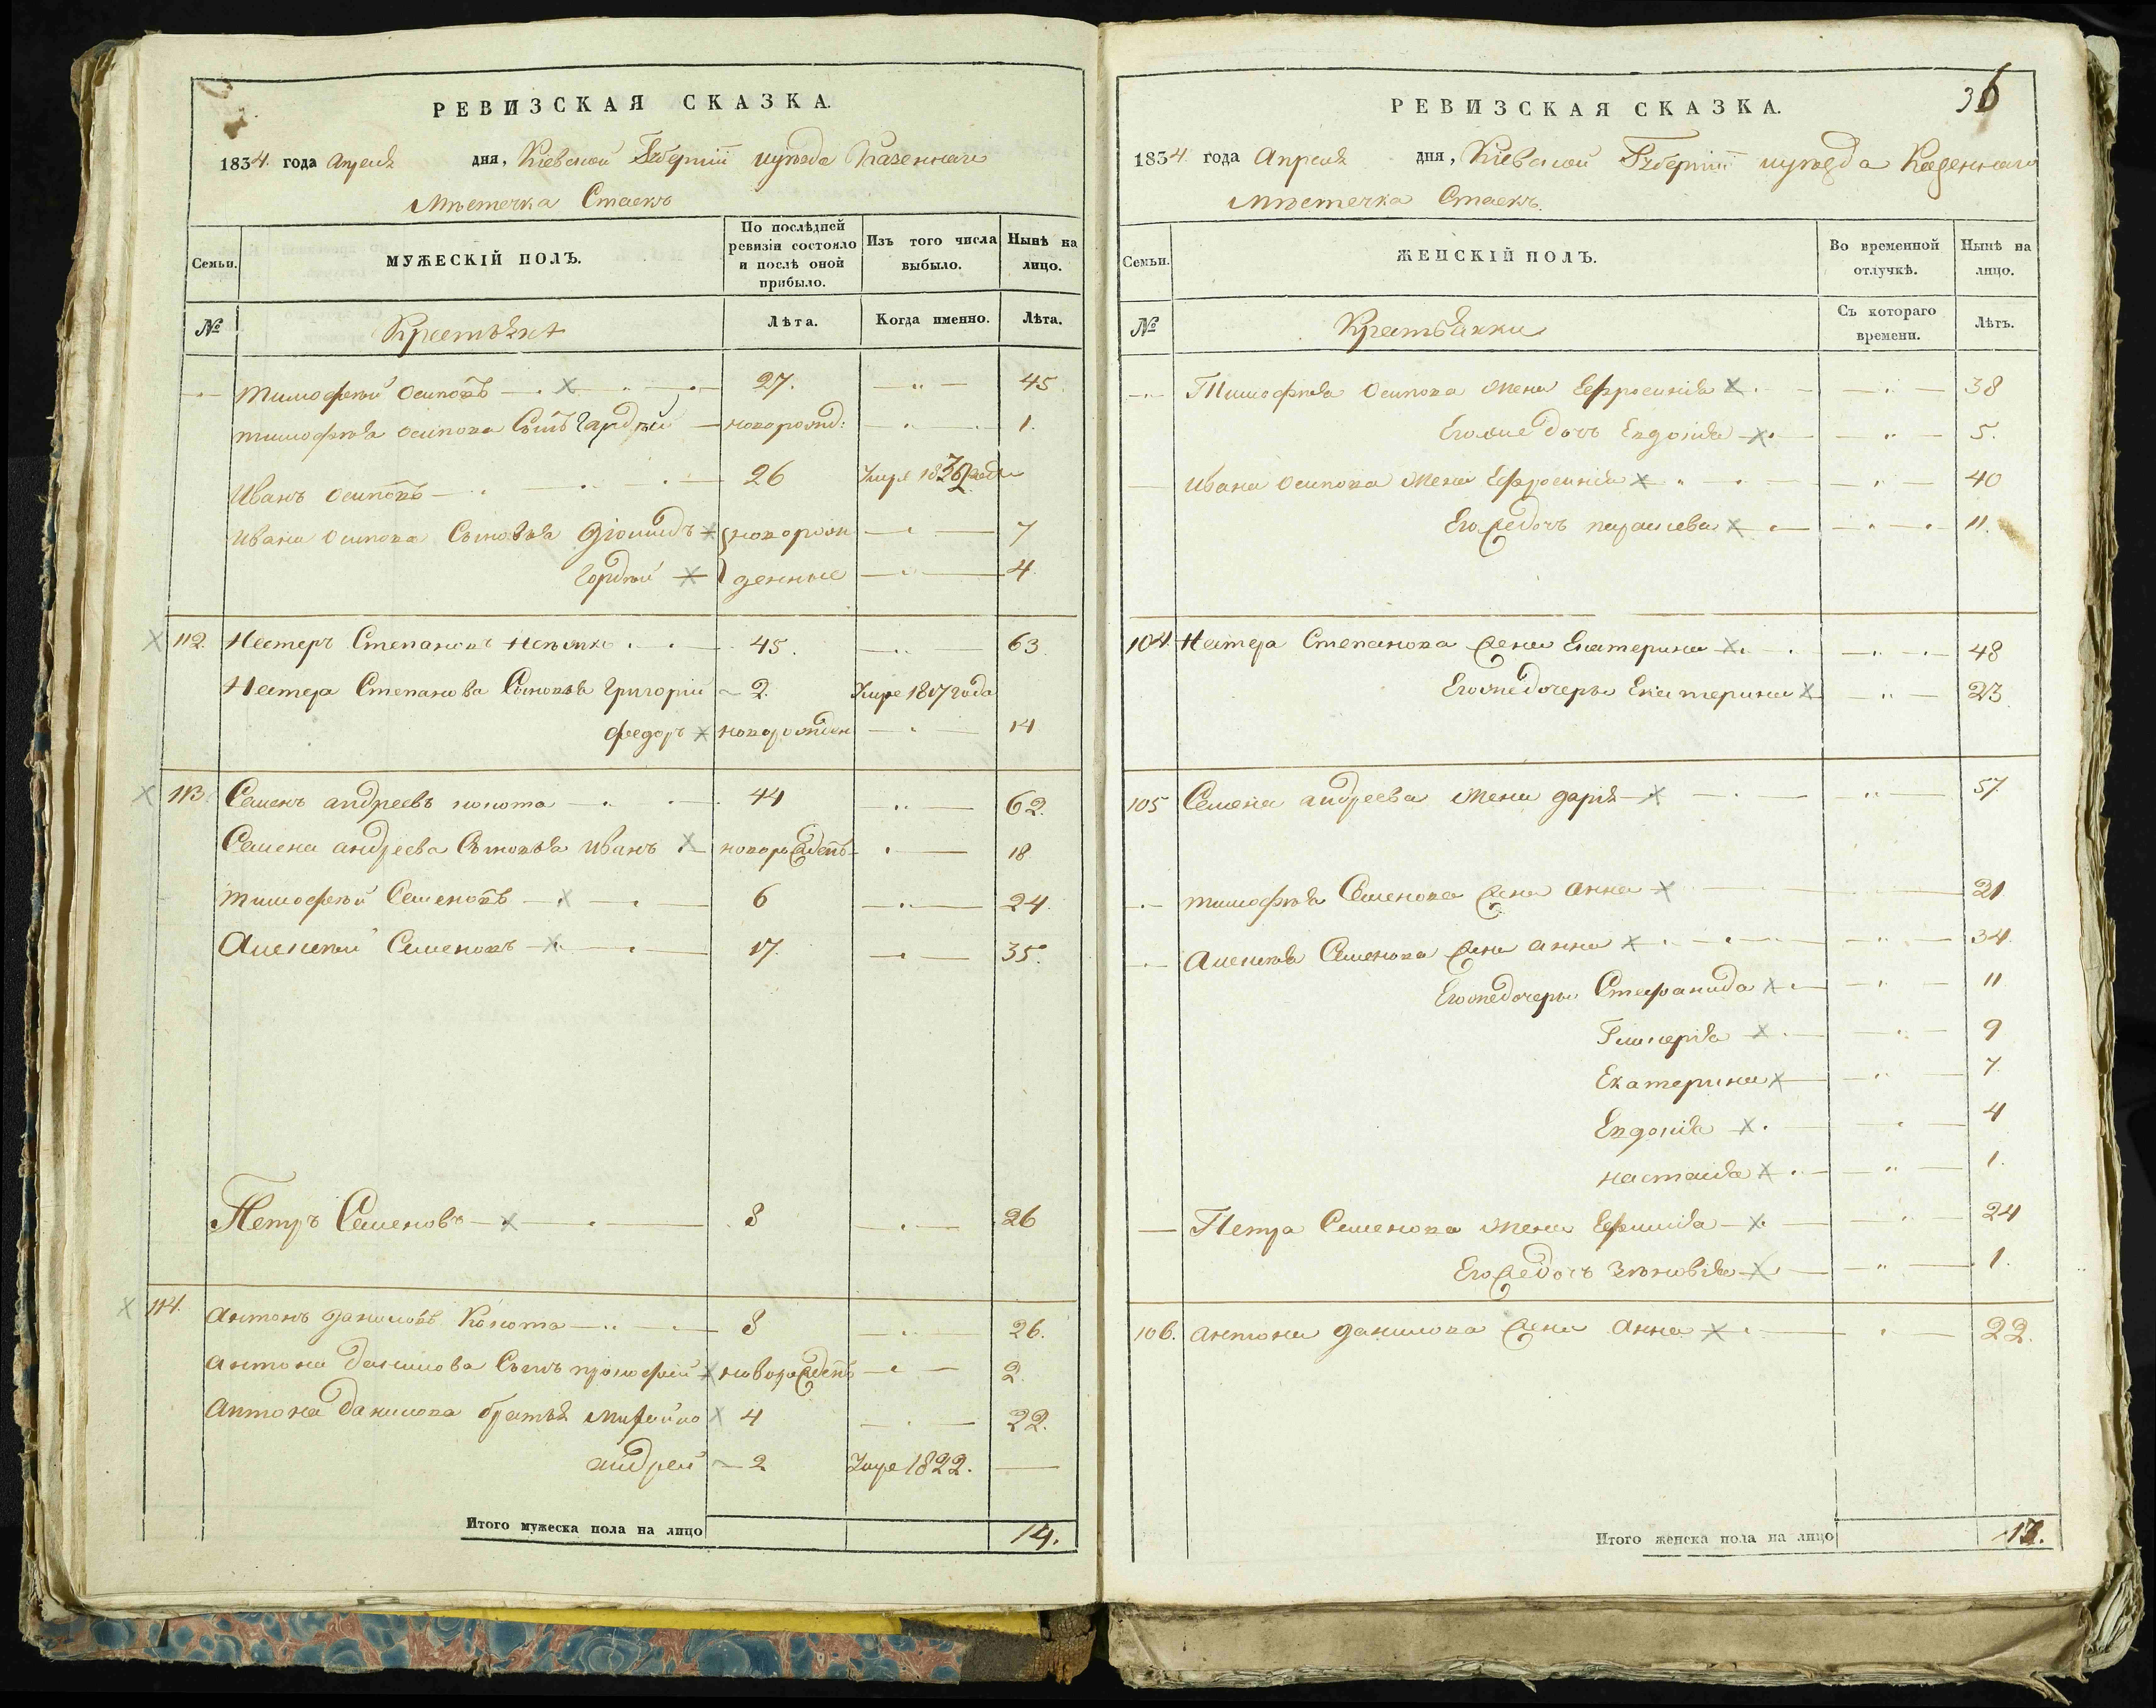 РЕВИЗСКАЯ СКАЗКА.
1834. года Апреля дня, Кіевской Губерніи и уѣзда Казеннаго
Мѣстечка Стаекъ
Семьи. МУЖЕСКІЙ ПОЛЪ. По послѣдней ревизіи состояло и послѣ оной прибыло. Изъ того числа выбыло. Нынѣ на лицо.
№ Крестьяне Лѣта. Когда именно. Лѣта.
Тимофѣй Осиповъ 27. 45.
Тимофѣя Осипова Сынъ новорожд: 1.
Иванъ Осиповъ 26 Умре года
Ивана Осипова Сыновья Діомидъ новорож 7
Гордѣй денные 4.
112. Нестеръ Степановъ 45. 63.
Нестера Степанова Сыновья Григорій 2. Умре 1817 года
Федоръ новорожден 14
113. Семенъ Андреевъ 44 62.
Семена Андреева Сыновья Иванъ новорожденъ 18
Тимофѣй Семеновъ 6 24.
Алексѣй Семеновъ 17. 35.
Петръ Семеновъ 8 26
114. Антонъ Даниловъ 8 26.
Антона Данилова Сынъ Прокофій новорожденъ 2.
Антона Данилова братья Михайло 4 22.
Андрей 2 Умре 1822.
Итого мужеска пола на лицо 14.
36
РЕВИЗСКАЯ СКАЗКА.
1834 года Апреля дня, Кіевской Губерніи и уѣзда Казеннаго
Мѣстечка Стаекъ.
Семьи. ЖЕНСКІЙ ПОЛЪ. Во временной отлучкѣ. Нынѣ на лицо.
№ Крестьянки Съ котораго времени. Лѣтъ.
Тимофѣя Осипова жена Ефросинія 38
Его же дочь Евдокія 5.
Ивана Осипова жена Ефросинія 40
Его же дочь 11.
104. Нестера Степанова жена Екатерина 48
Его же дочерь Екатерина 23
105 Семена Андреева жена Дарія 57
Тимофѣя Семенова жена Анна 21
Алексѣя Семенова жена Анна 34.
Его же дочеры Стефанида 11
Гликерія 9
Екатерина 7.
Евдокія 4
Настасія 1.
Петра Семенова жена Ефимія 24
Его же дочь Зѣновія 1.
106. Антона Данилова жена Анна 22.
Итого женска пола на лицо